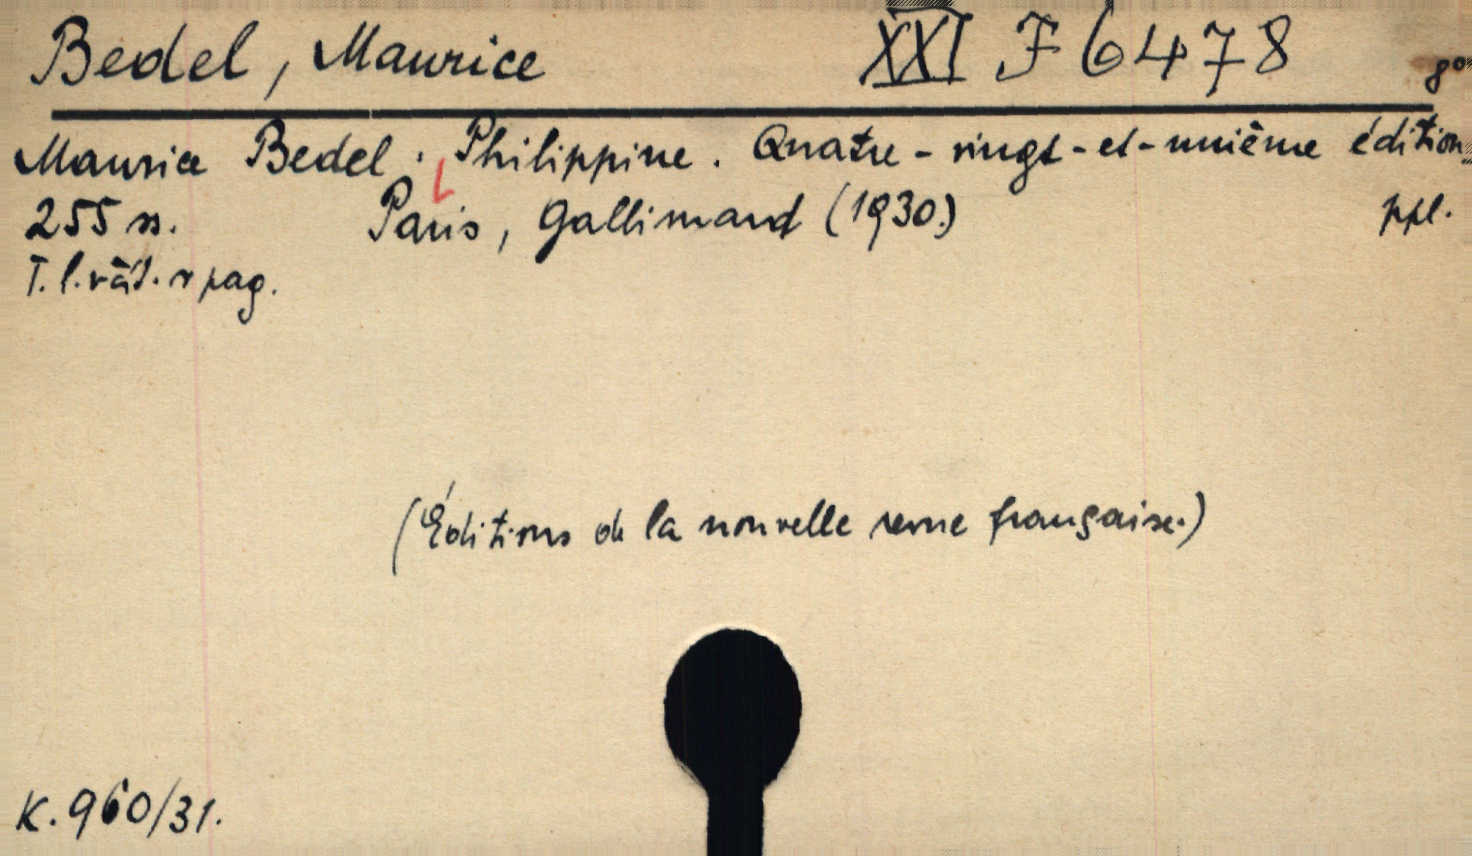 Bedel, Maurice XXI F 6478 8°
Maurice Bedel. Philippine. Quatre-vingt-et-unième édition.
255 s. Paris, Gallimard (1930.) ppl.
T. l. vää. v pag.
(Éditions de la nouvelle revue française.)
K. 960/31.